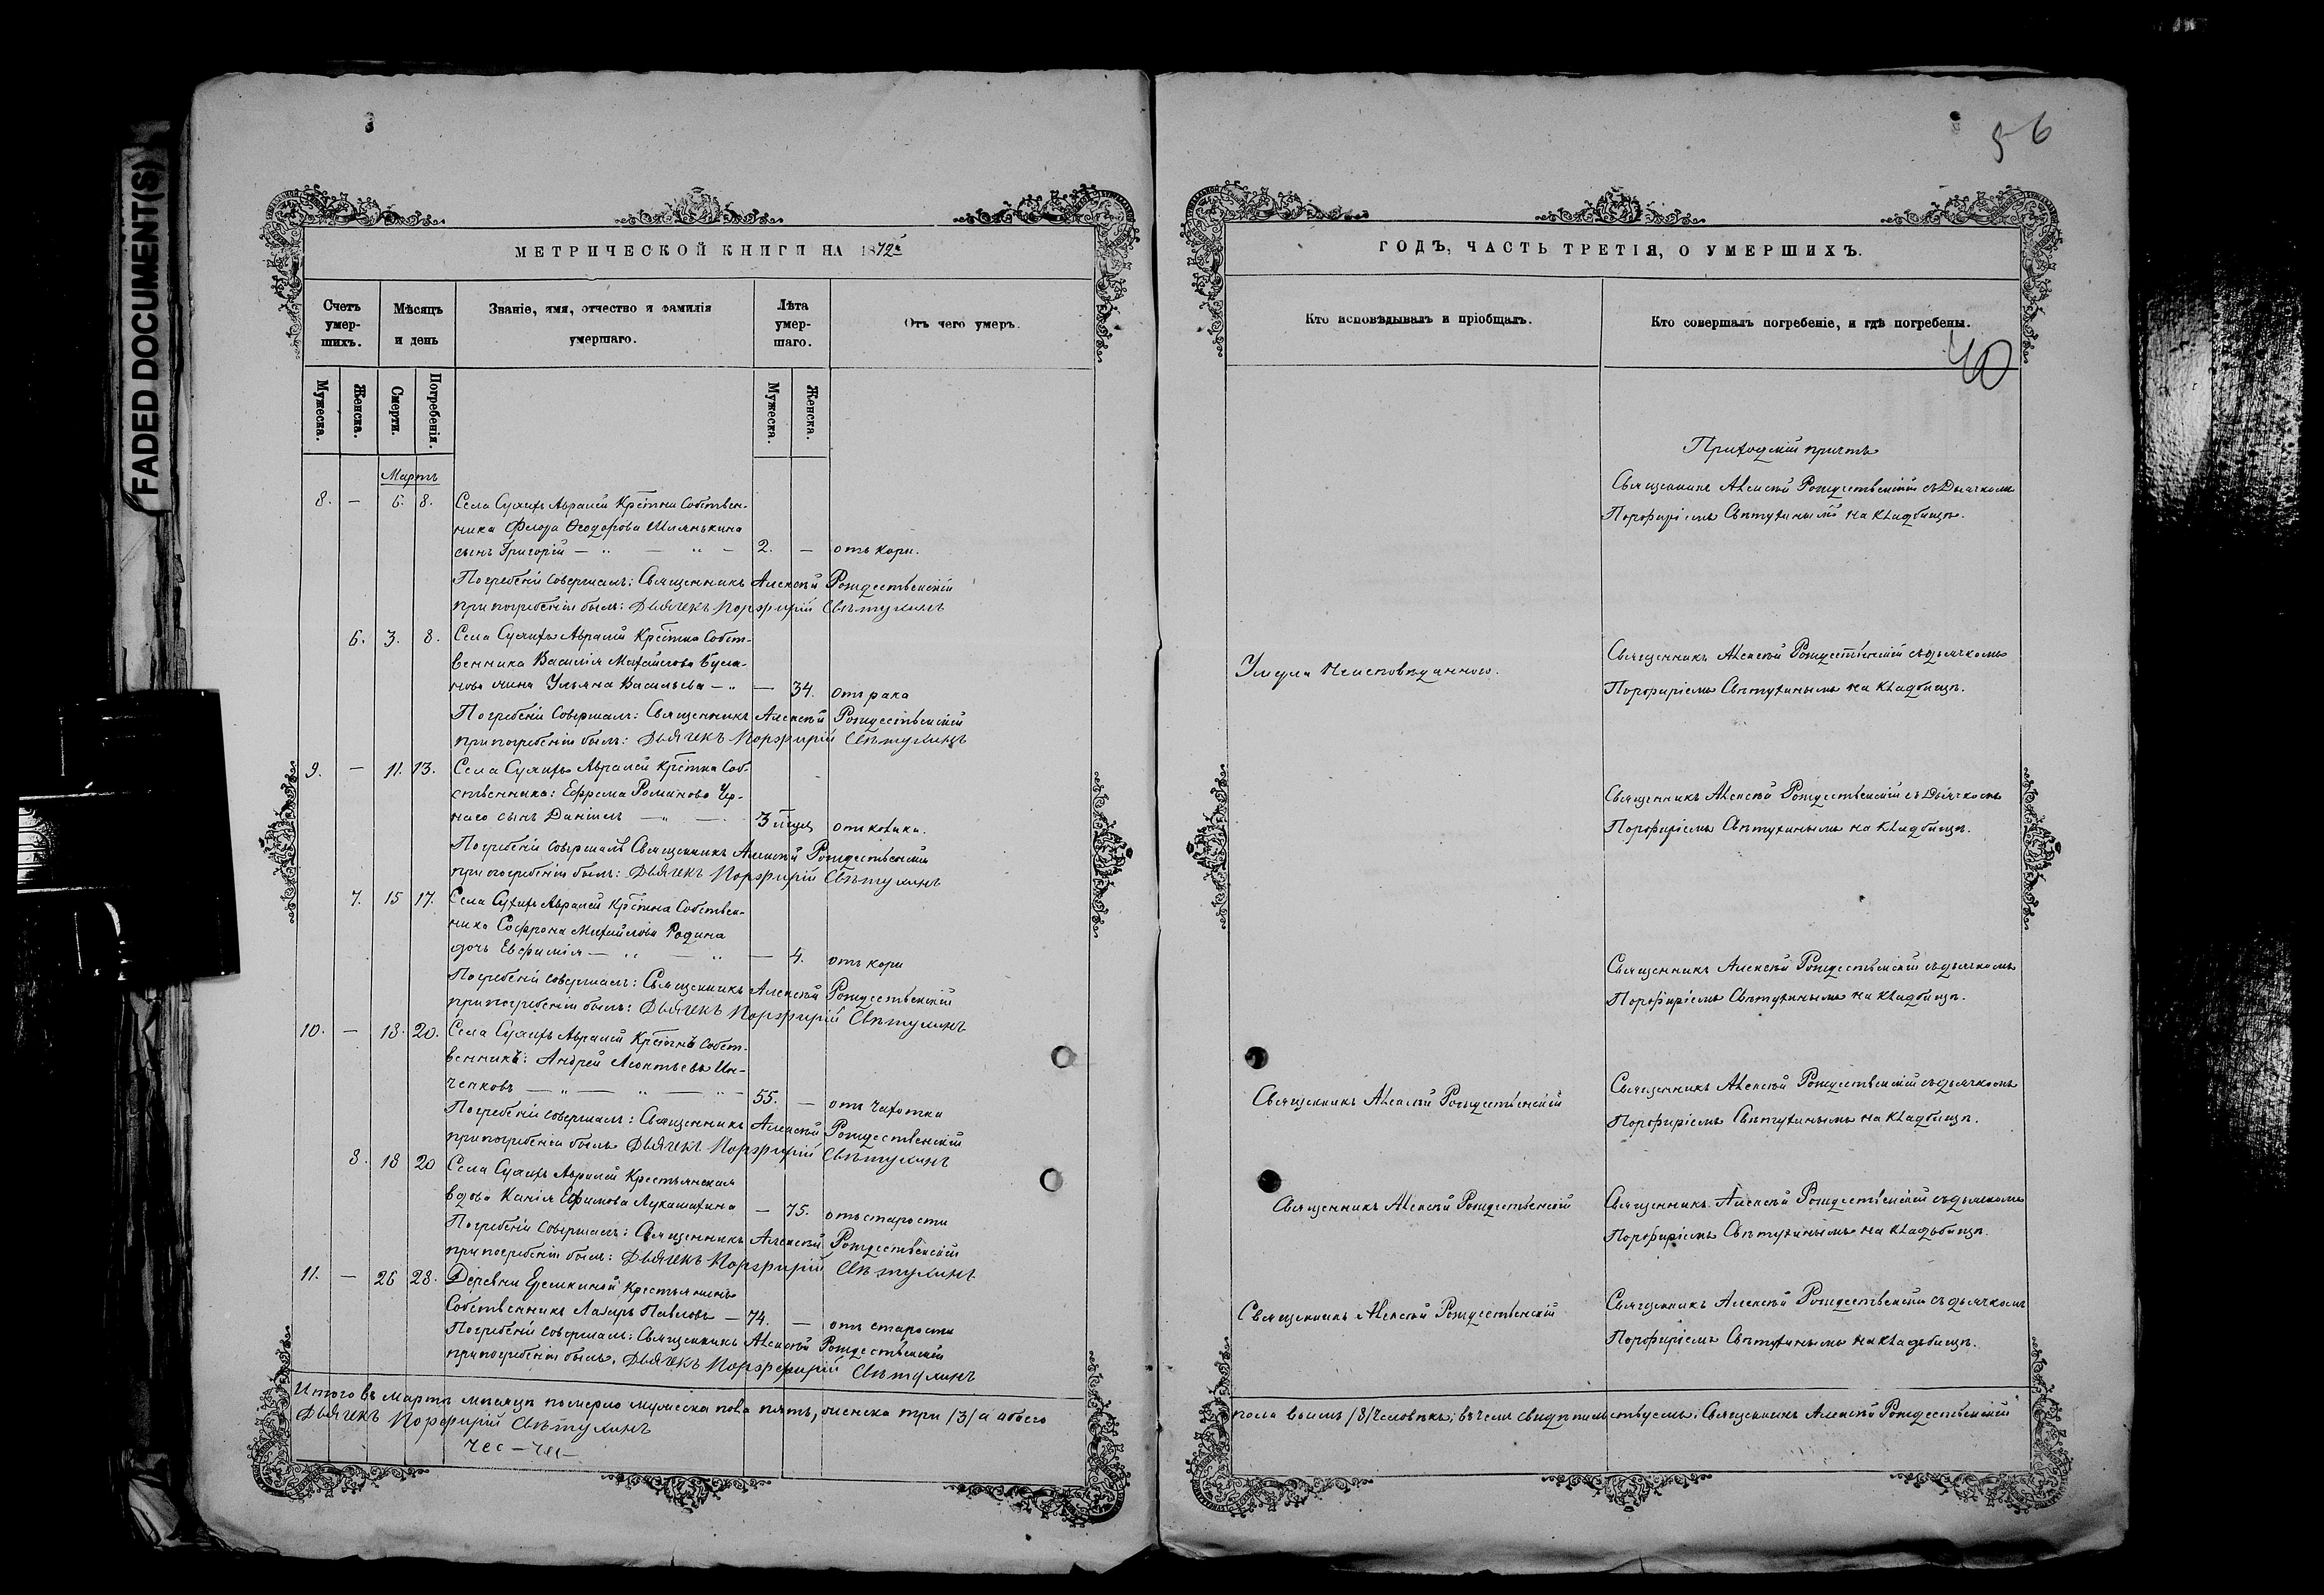 FADED DOCUMENT(S)
56
МЕТРИЧЕСКОЙ КНИГИ НА 1872й
Счетъ умер-шихъ.
Мѣсяцъ и день
Званіе, имя, отчество и фамилія умершаго.
Лѣта умер-шаго.
Отъ чего умеръ.
Мужеска.
Женска.
Смерти.
Погребенія.
Мужеска.
Женска.
Мартъ
8. — 6. 8. Села Авралей Крестна Собствен-
ника Ѳеодорова
сынъ Григорій — " — " — 2. — отъ кори.
Погребеніе Совершалъ: Священникъ Алексѣй Рождественскій
при погребеніи былъ: Дьячекъ Порфирій Свѣтухинъ
6. 3. 8. Села Авралей Крестна Собст-
венника Василія Михайлова
жена Ульяна Васильева — " — 34. отъ рака
Погребеніе Совершалъ: Священникъ Алексѣй Рождественскій
при погребеніи былъ: Дьячекъ Порфирій Свѣтухинъ
9. — 11. 13. Села Авралей Крестна Соб-
ственника: Ефрема Романова Чер-
наго сынъ Даніилъ — " — 3 отъ
Погребеніе совершалъ Священникъ Алексѣй Рождественскій
при погребеніи былъ: Дьячекъ Порфирій Свѣтухинъ
7. 15 17. Села Авралей Крестна Собствен-
ника Софрона Михайлова Родина
дочь Евфимія — " — " — 4. отъ кори
Погребеніе совершалъ: Священникъ Алексѣй Рождественскій
при погребеніи былъ: Дьячекъ Порфирій Свѣтухинъ
10. — 18. 20. Села Авралей Крестнъ Собст-
венникъ: Андрей Леонтьевъ Ин-
ченковъ — " — " — " — 55. — отъ чахотки
Погребеніе совершалъ: Священникъ Алексѣй Рождественскій
при погребеніи былъ Дьячекъ Порфирій Свѣтухинъ
8. 18 20 Села Авралей Крестьянская
вдова Ефимова Лукашихина — 75. отъ старости
Погребеніе Совершалъ: Священникъ Алексѣй Рождественскій
при погребеніи былъ: Дьячекъ Порфирій Свѣтухинъ
11. — 26 28. Деревни Еремкиной Крестьянинъ
Собственникъ Лазарь Павловъ — 74. — отъ старости
Погребеніе совершалъ: Священникъ Алексѣй Рождественскій
при погребеніи былъ. Дьячекъ Порфирій Свѣтухинъ
Итого въ мартѣ мѣсяцѣ померло мужеска пола пять, женска три /3/ а обоего
Дьячекъ Порфирій Свѣтухинъ
ГОДЪ, ЧАСТЬ ТРЕТІЯ, О УМЕРШИХЪ.
Кто исповѣдывалъ и пріобщалъ.
Кто совершалъ погребеніе, и гдѣ погребены.
40
Приходскій причтъ
Священникъ Алексѣй Рождественскій съ Дьячкомъ
Порфиріемъ Свѣтухинымъ на кладбищѣ.
Священникъ Алексѣй Рождественскій съ дьячкомъ
Умерла Неисповѣданною.
Порфиріемъ Свѣтухинымъ на кладбищѣ.
Священникъ Алексѣй Рождественскій съ Дьячкомъ
Порфиріемъ Свѣтухинымъ на кладбищѣ.
Священникъ Алексѣй Рождественскій съ дьячкомъ
Порфиріемъ Свѣтухинымъ на кладбищѣ.
Священникъ Алексѣй Рождественскій
Священникъ Алексѣй Рождественскій съ дьячкомъ
Порфиріемъ Свѣтухинымъ на кладбищѣ.
Священникъ Алексѣй Рождественскій
Священникъ Алексѣй Рождественскій съ дьячкомъ
Порфиріемъ Свѣтухинымъ на кладьбищѣ.
Священникъ Алексѣй Рождественскій
Священникъ Алексѣй Рождественскій съ дьячкомъ
Порфиріемъ Свѣтухинымъ на кладьбищѣ.
пола восемь /8/ человѣкъ; въ чемъ свидѣтельствуемъ: Священникъ Алексѣй Рождественскій